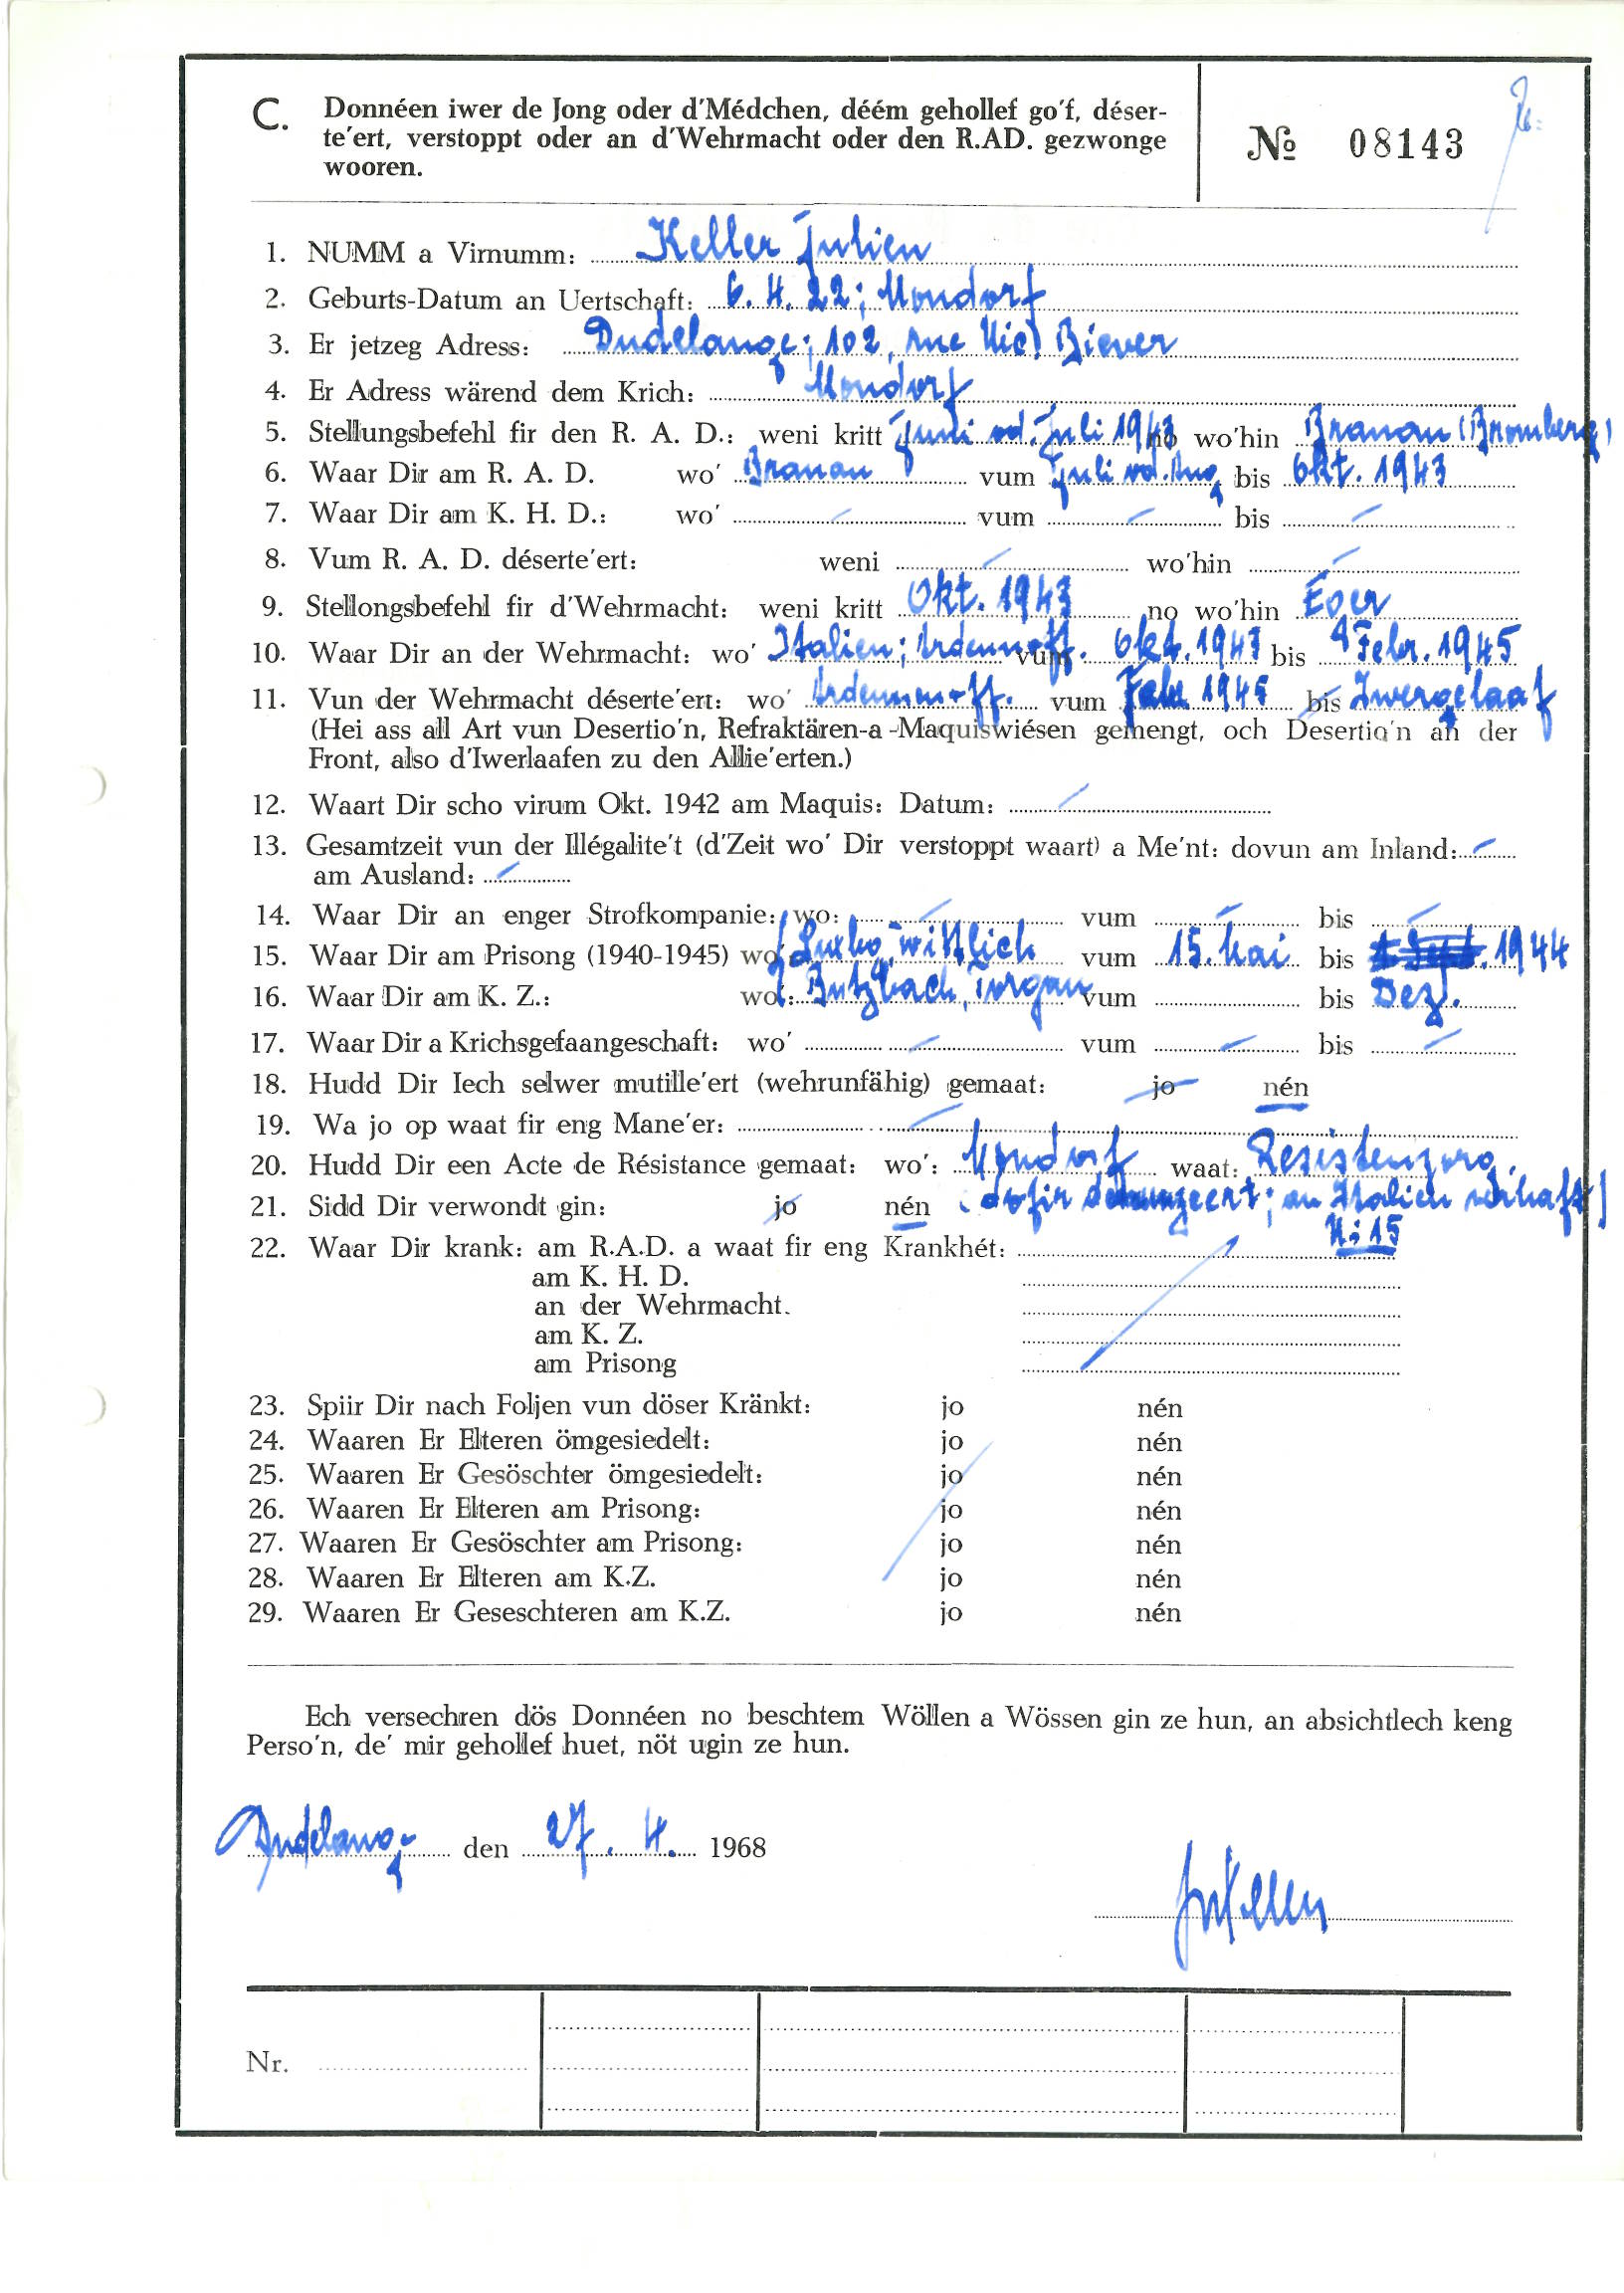 C. Donnéen iwer de Jong oder d'Médchen, déém gehollef go'f, déser-
te'ert, verstoppt oder an d'Wehrmacht oder den R.AD. gezwonge
wooren.
№ 08143
1. NUMM a Virnumm: Keller Julien
2. Geburts-Datum an Uertschaft: 6. 4. 22; Mondorf
3. Er jetzeg Adress: Dudelange; 102, rue Nic) Biever
4. Er Adress wärend dem Krich: Mondorf
5. Stellungsbefehl fir den R. A. D.: weni kritt Juni od. Juli 1943 no wo'hin Branau (Bromberg)
6. Waar Dir am R. A. D. wo' Branau vum Juli od. Aug bis Okt. 1943
7. Waar Dir am K. H. D.: wo' – vum – bis –
8. Vum R. A. D. déserte'ert: weni – wo'hin –
9. Stellongsbefehl fir d'Wehrmacht: weni kritt Okt. 1943 no wo'hin Eger
10. Waar Dir an der Wehrmacht: wo' Italien; Ardennoff. vum Okt. 1943 bis Febr. 1945
11. Vun der Wehrmacht déserte'ert: wo' Ardennenoff. vum Febr 1945 bis Iwergelaaf
(Hei ass all Art vun Desertio'n, Refraktären-a-Maquiswiésen gemengt, och Desertio'n an der
Front, also d'Iwerlaafen zu den Allie'erten.)
12. Waart Dir scho virum Okt. 1942 am Maquis: Datum: –
13. Gesamtzeit vun der Illégalite't (d'Zeit wo' Dir verstoppt waart) a Me'nt: dovun am Inland: –
am Ausland: –
14. Waar Dir an enger Strofkompanie: wo: – vum – bis –
15. Waar Dir am Prisong (1940-1945) wo' Luxbg, Wittlich vum 15. Mai bis 1944
16. Waar Dir am K. Z.: wo': Butzbach, Torgau vum bis Dez.
17. Waar Dir a Krichsgefaangeschaft: wo' – vum – bis –
18. Hudd Dir Iech selwer mutille'ert (wehrunfähig) gemaat: jo nén
19. Wa jo op waat fir eng Mane'er: –
20. Hudd Dir een Acte de Résistance gemaat: wo': Mondorf waat: Resistenzorg.
21. Sidd Dir verwondt gin: jo nén (dofir an Italien verhaft)
N: 15
22. Waar Dir krank: am R.A.D. a waat fir eng Krankhét:
am K. H. D.
an der Wehrmacht.
am K. Z.
am Prisong
23. Spiir Dir nach Foljen vun döser Kränkt: jo nén
24. Waaren Er Elteren ömgesiedelt: jo nén
25. Waaren Er Gesöschter ömgesiedelt: jo nén
26. Waaren Er Elteren am Prisong: jo nén
27. Waaren Er Gesöschter am Prisong: jo nén
28. Waaren Er Elteren am K.Z. jo nén
29. Waaren Er Geseschteren am K.Z. jo nén
Ech versechren dös Donnéen no beschtem Wöllen a Wössen gin ze hun, an absichtlech keng
Perso'n, de' mir gehollef huet, nöt ugin ze hun.
Dudelange den 27. 4. 1968
JuKeller
Nr.